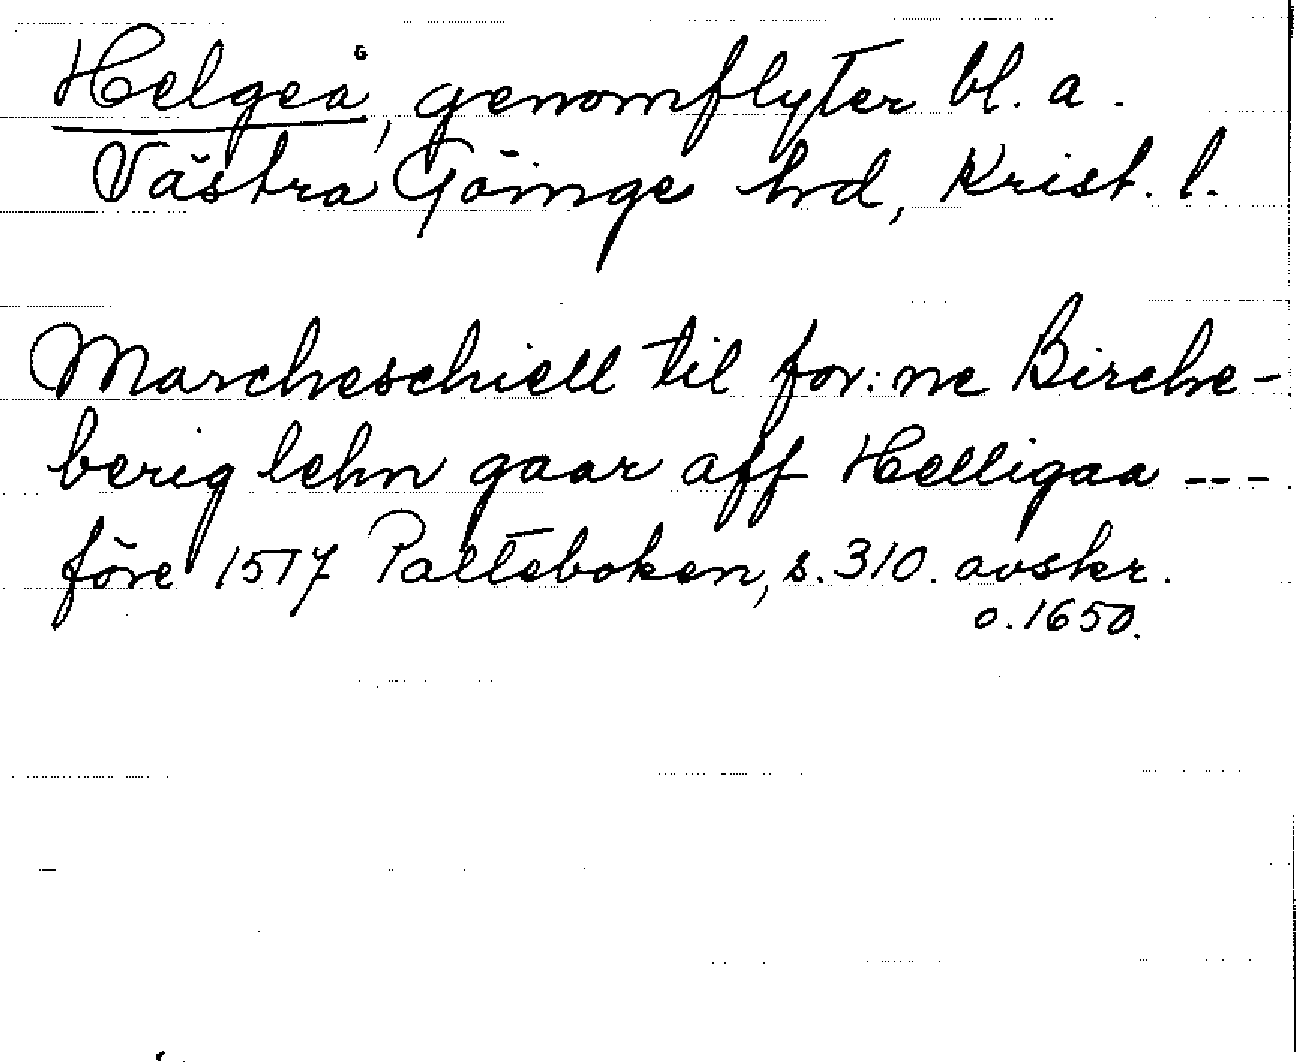 Helgeå, genomflyter bl. a.
Västra Göinge hd, Krist. l.
Marcheschiell til for:ne Birche-
berig lehn gaar aff Helligaa ---
före 1517 Palteboken, s. 310. avskr.
o. 1650.